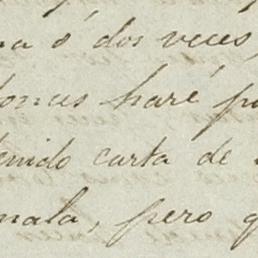 na ó dos veces,
tonces haré po
tenido carta de
mala, pero q